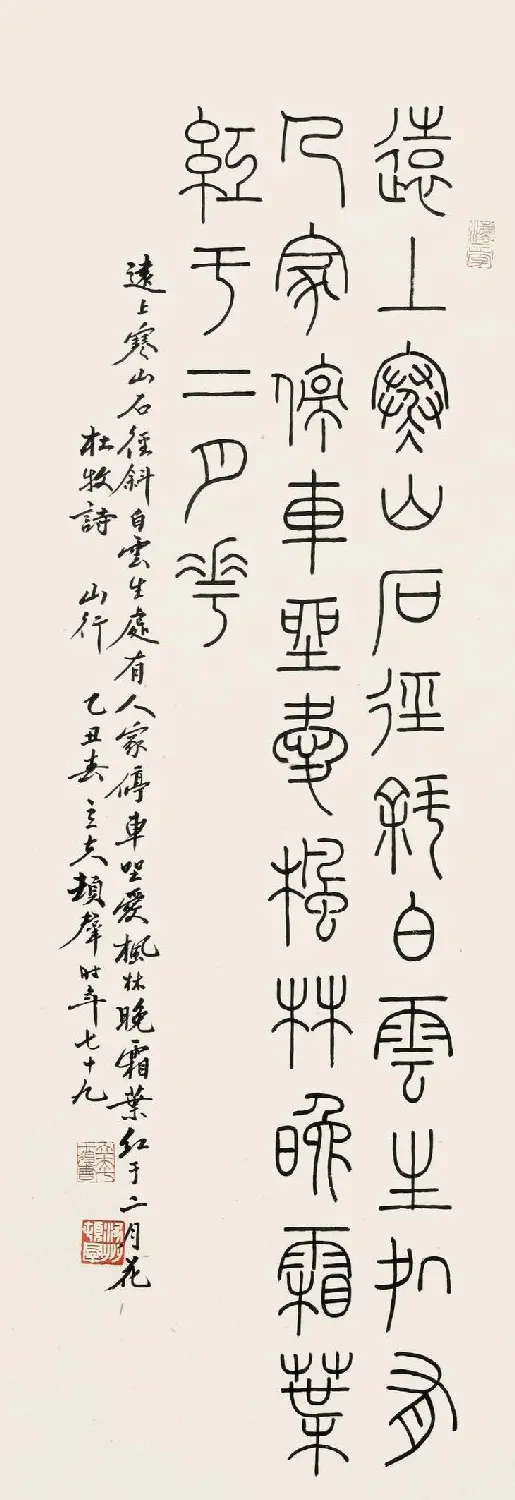 遠上寒山石徑斜白雲生処有
人家停車坐愛楓林晚霜葉
紅于二月花
遠上寒山石徑斜白雲生處有人家停車坐愛楓林晚霜葉紅于二月花
杜牧詩 山行 乙丑春 立夫頓羣時年七十九